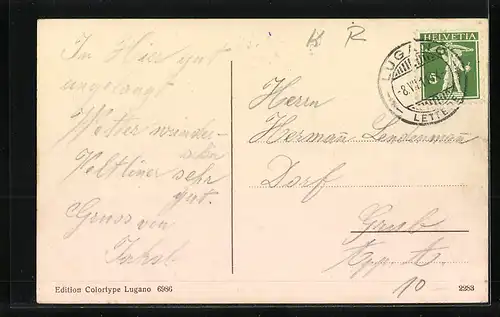 K R
In Hier gut
angelangt
Wetter wunder-
schön
Veltliner sehr
gut.
Gruss von
HELVETIA
5
LUGANO
LETTERE
Herrn
Hermann Lendenmann
Dorf
Grub
App. A.
10
Edition Colortype Lugano 6986
2253